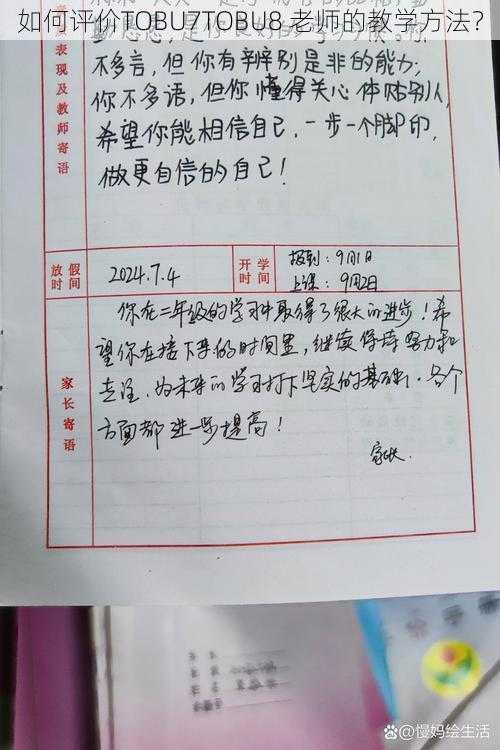 如何评价TOBU7TOBU8 老师的教学方法？
表现及教师寄语
不多言，但你有辨别是非的能力；
你不多语，但你懂得关心体贴别人，
希望你能相信自己，一步一个脚印，
做更自信的自己！
放假时间
2024.7.4
开学时间
报到：9月1日
上课：9月2日
家长寄语
你在二年级的学习中取得了很大的进步！希
望你在接下来的时间里，继续保持努力和
专注，为未来的学习打下坚实的基础，各个
方面都进一步提高！
家长.
@慢妈绘生活